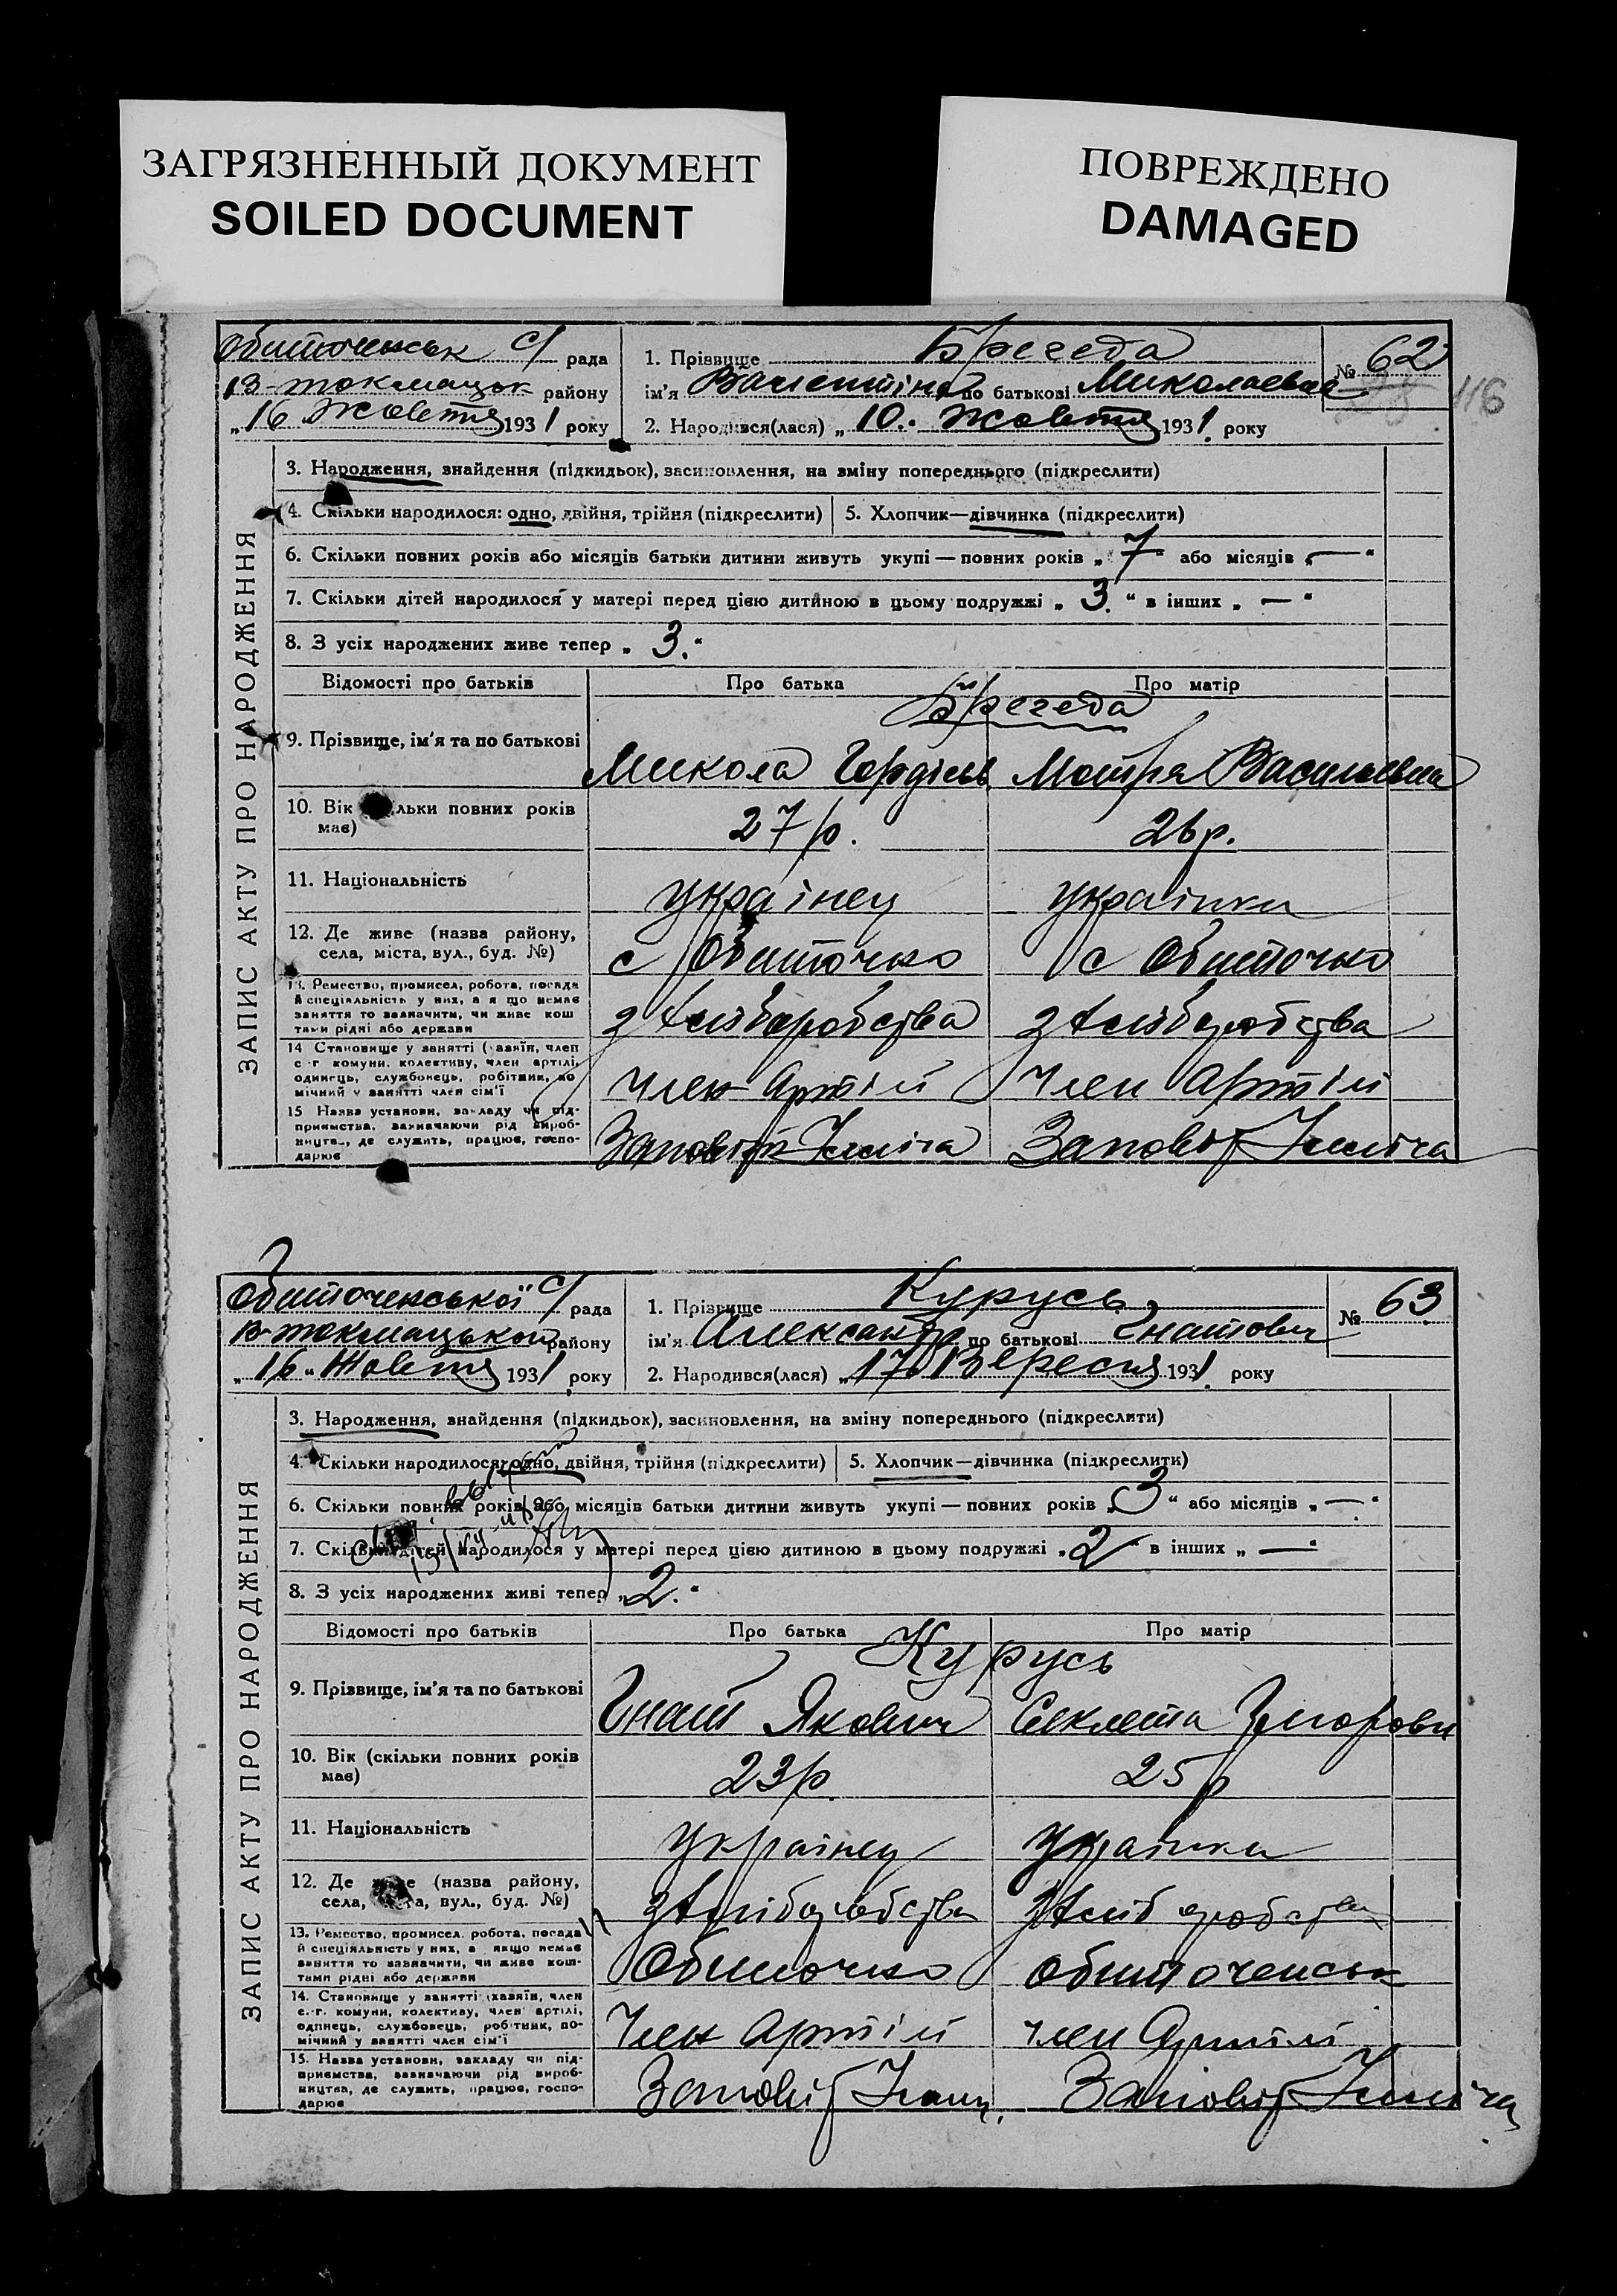 ЗАГРЯЗНЕННЫЙ ДОКУМЕНТ
SOILED DOCUMENT
ПОВРЕЖДЕНО
DAMAGED
Обиточенськ с/ рада
В-токмацьк району
„16 Жовтня 1931 року
1. Прізвище Брегеда
ім'я Валентіна по батькові Миколаевна
2. Народився(лася) „10.. Жовтня 1931. року
№ 62
116
ЗАПИС АКТУ ПРО НАРОДЖЕННЯ
3. Народження, знайдення (підкидьок), засиновлення, на зміну попереднього (підкреслити)
4. Скільки народилося: одно, двійня, трійня (підкреслити) 5. Хлопчик—дівчинка (підкреслити)
6. Скільки повних років або місяців батьки дитини живуть укупі — повних років „ 7 або місяців „ — “
7. Скільки дітей народилося у матері перед цією дитиною в цьому подружжі „ 3. “ в інших „ — “
8. З усіх народжених живе тепер „ 3. “
Відомості про батьків Про батька Про матір
Брегеда
9. Прізвище, ім'я та по батькові Микола Гордієв Мотря Васильевна
10. Вік льки повних років має) 27 р. 26 р.
11. Національність українец українка
12. Де живе (назва району, села, міста, вул., буд. №) с Обиточно с Обиточно
13. Ремество, промисел, робота, посада й спеціальність у них, а я що немає заняття то зазначити, чи живе кош тами рідні або держави з хліборобства з хліборобства
14 Становище у занятті ( азяїн, член с г комуни, колективу, член артілі, одинець, службовець, робітник, по мічний у занятті член сім'ї Член Артіли Член Артіли
15 Назва установи, закладу чи під- приємства, зазначаючи рід вироб- ництва, де служить, працює, госпо- дарює Заповіт Ілліча Заповіт Ілліча
Обиточенської с/ рада
В-токмацькои району
„16 “ Жовтня 1931 року
1. Прізвище Курусь
ім'я Александр по батькові Гнатович
2. Народився(лася) „17 Вересня 1931. року
№ 63
ЗАПИС АКТУ ПРО НАРОДЖЕННЯ
3. Народження, знайдення (підкидьок), засиновлення, на зміну попереднього (підкреслити)
4. Скільки народилося: одно, двійня, трійня (підкреслити) 5. Хлопчик—дівчинка (підкреслити)
6. Скільки повних років або місяців батьки дитини живуть укупі — повних років „ 3 “ або місяців „ — “
7. Скільки дітей народилося у матері перед цією дитиною в цьому подружжі „ 2 “ в інших „ — “
8. З усіх народжених живі тепер „ 2. “
Відомості про батьків Про батька Про матір
Курусь
9. Прізвище, ім'я та по батькові Гнат Якович Секлета
10. Вік (скільки повних років має) 23 р 25 р
11. Національність українец українка
12. Де (назва району, села, вул., буд. №) з хліборобства з хліборобства
13. Ремество, промисел, робота, посада й спеціяльність у них, а якщо немає заняття то зазначити, чи живе кош- тами рідні або держави Обиточно Обиточенськ
14. Становище у занятті (хазяїн, член с.-г. комуни, колективу, член артілі, одинець, службовець, робітник, по- мічний у занятті член сім'ї Член Артіли член Артіли
15. Назва установи, закладу чи під- приємства, зазначаючи рід вироб- ництва, де служить, працює, госпо- дарює Заповіт Заповіт Ілліча